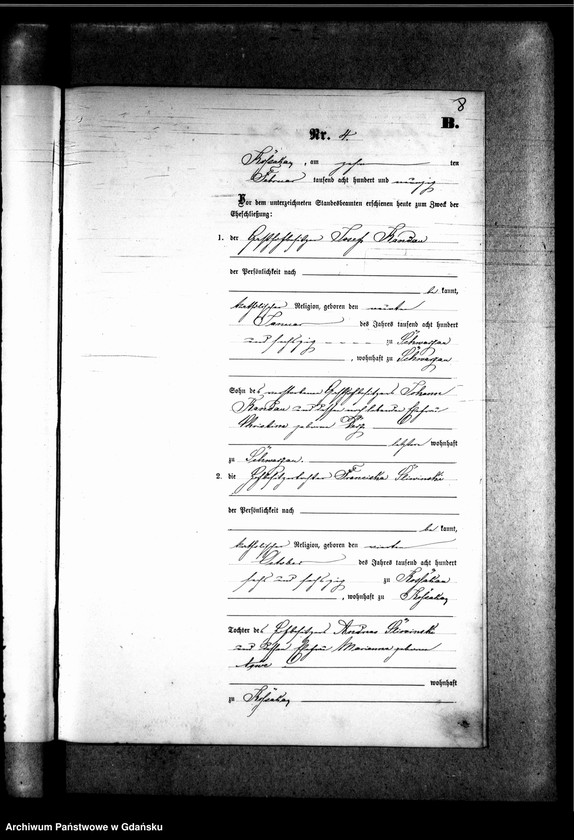 8
B.
Nr. 4.
Kossakau, am zehn ten
Februar tausend acht hundert und neunzig
Vor dem unterzeichneten Standesbeamten erschienen heute zum Zweck der
Eheschließung:
1. der Josef Kandau
der Persönlichkeit nach
be kannt,
katholischer Religion, geboren den
Januar des Jahres tausend acht hundert
und sechszig zu Schwarzau
, wohnhaft zu Schwarzau
Sohn des verstorbenen Johann
Kandau und dessen noch lebenden Ehefrau
Christine geborene
letztere wohnhaft
zu Schwarzau.
2. die Franciska Sliwinska
der Persönlichkeit nach
be kannt,
katholischer Religion, geboren den vierten
October des Jahres tausend acht hundert
sechs und sechszig zu Kossakau
, wohnhaft zu Kossakau
Tochter des Sliwinski
und dessen Ehefrau Marianna geboren
wohnhaft
zu Kossakau
Archiwum Państwowe w Gdańsku